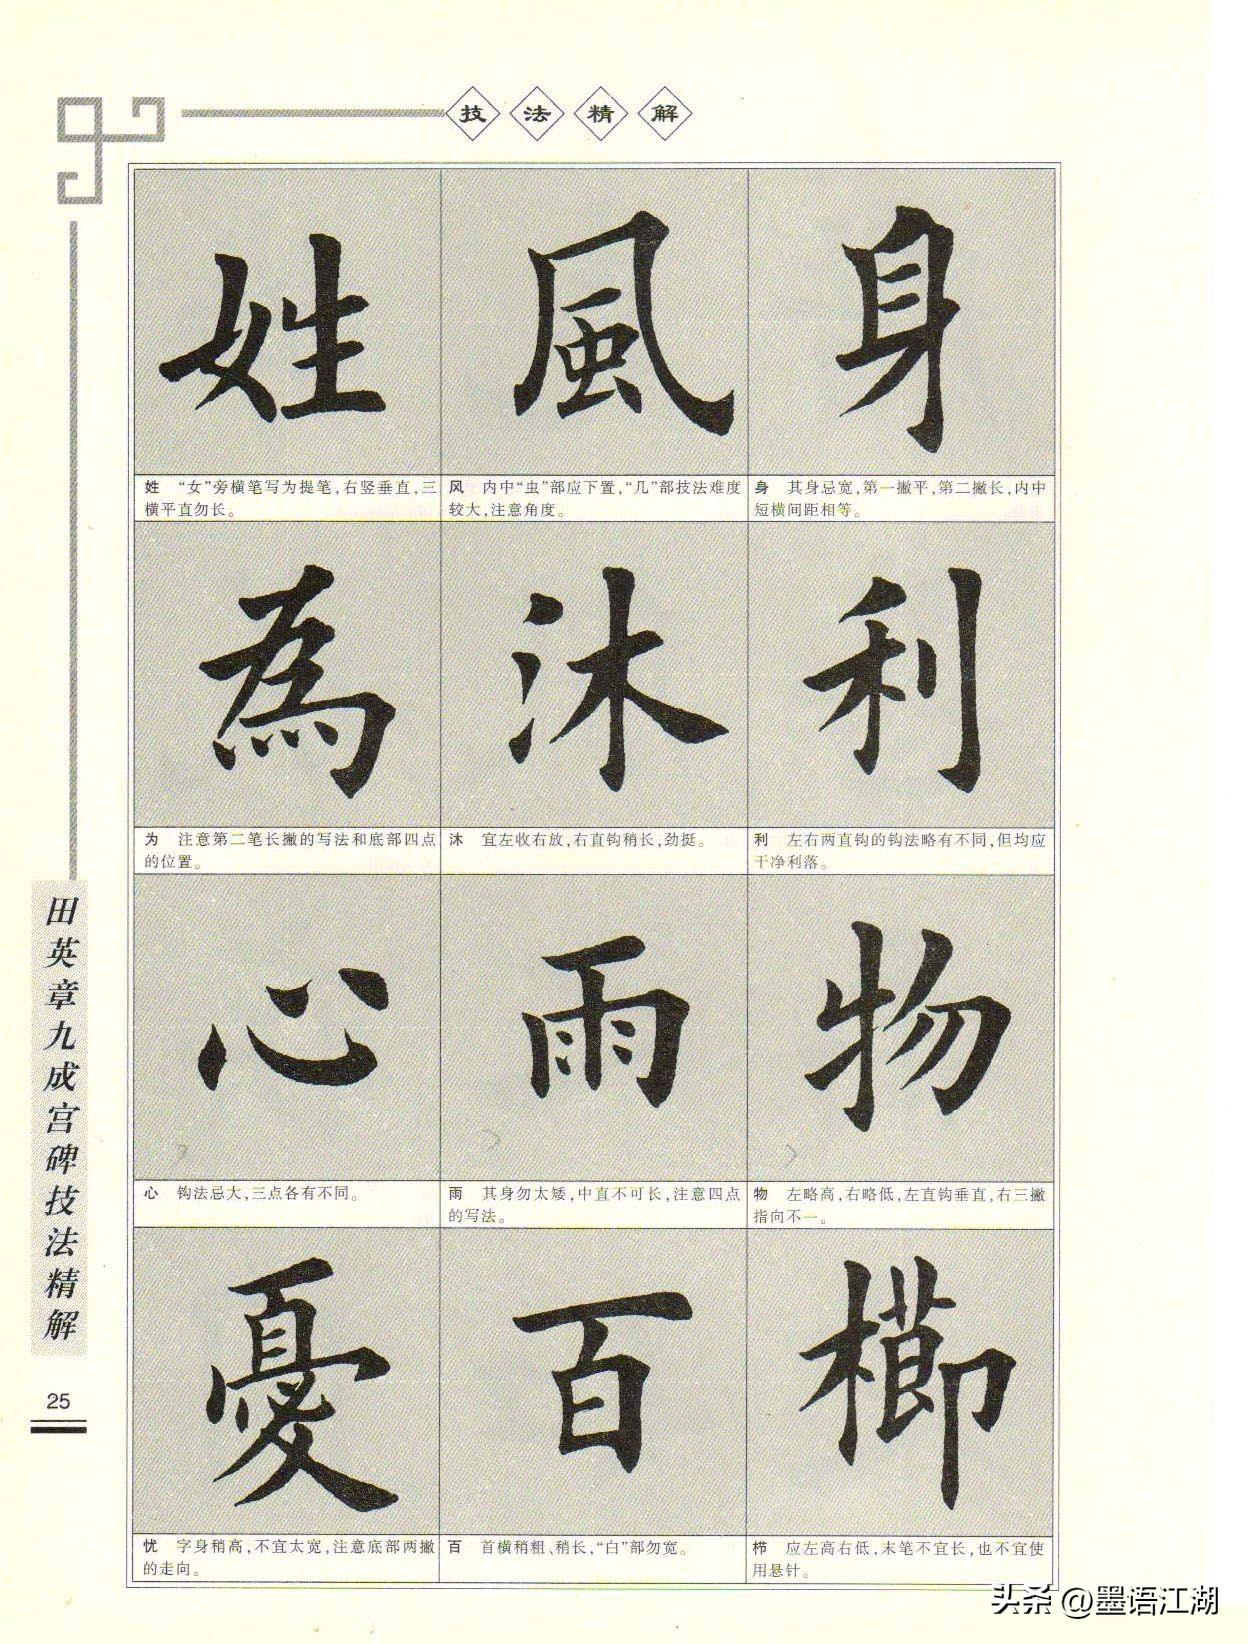 技法精解
姓 風 身
姓 “女”旁横笔写为提笔，右竖垂直，三
横平直勿长。
风 内中“虫”部应下置，“几”部技法难度
较大，注意角度。
身 其身忌宽，第一撇平，第二撇长，内中
短横间距相等。
為 沐 利
为 注意第二笔长撇的写法和底部四点
的位置。
沐 宜左收右放，右直钩稍长，劲挺。
利 左右两直钩的钩法略有不同，但均应
干净利落。
心 雨 物
心 钩法忌大，三点各有不同。
雨 其身勿太矮，中直不可长，注意四点
的写法。
物 左略高，右略低，左直钩垂直，右三撇
指向不一。
憂 百 櫛
忧 字身稍高，不宜太宽，注意底部两撇
的走向。
百 首横稍粗、稍长，“白”部勿宽。
栉 应左高右低，末笔不宜长，也不宜使
用悬针。
田英章九成宫碑技法精解
25
头条 @墨语江湖